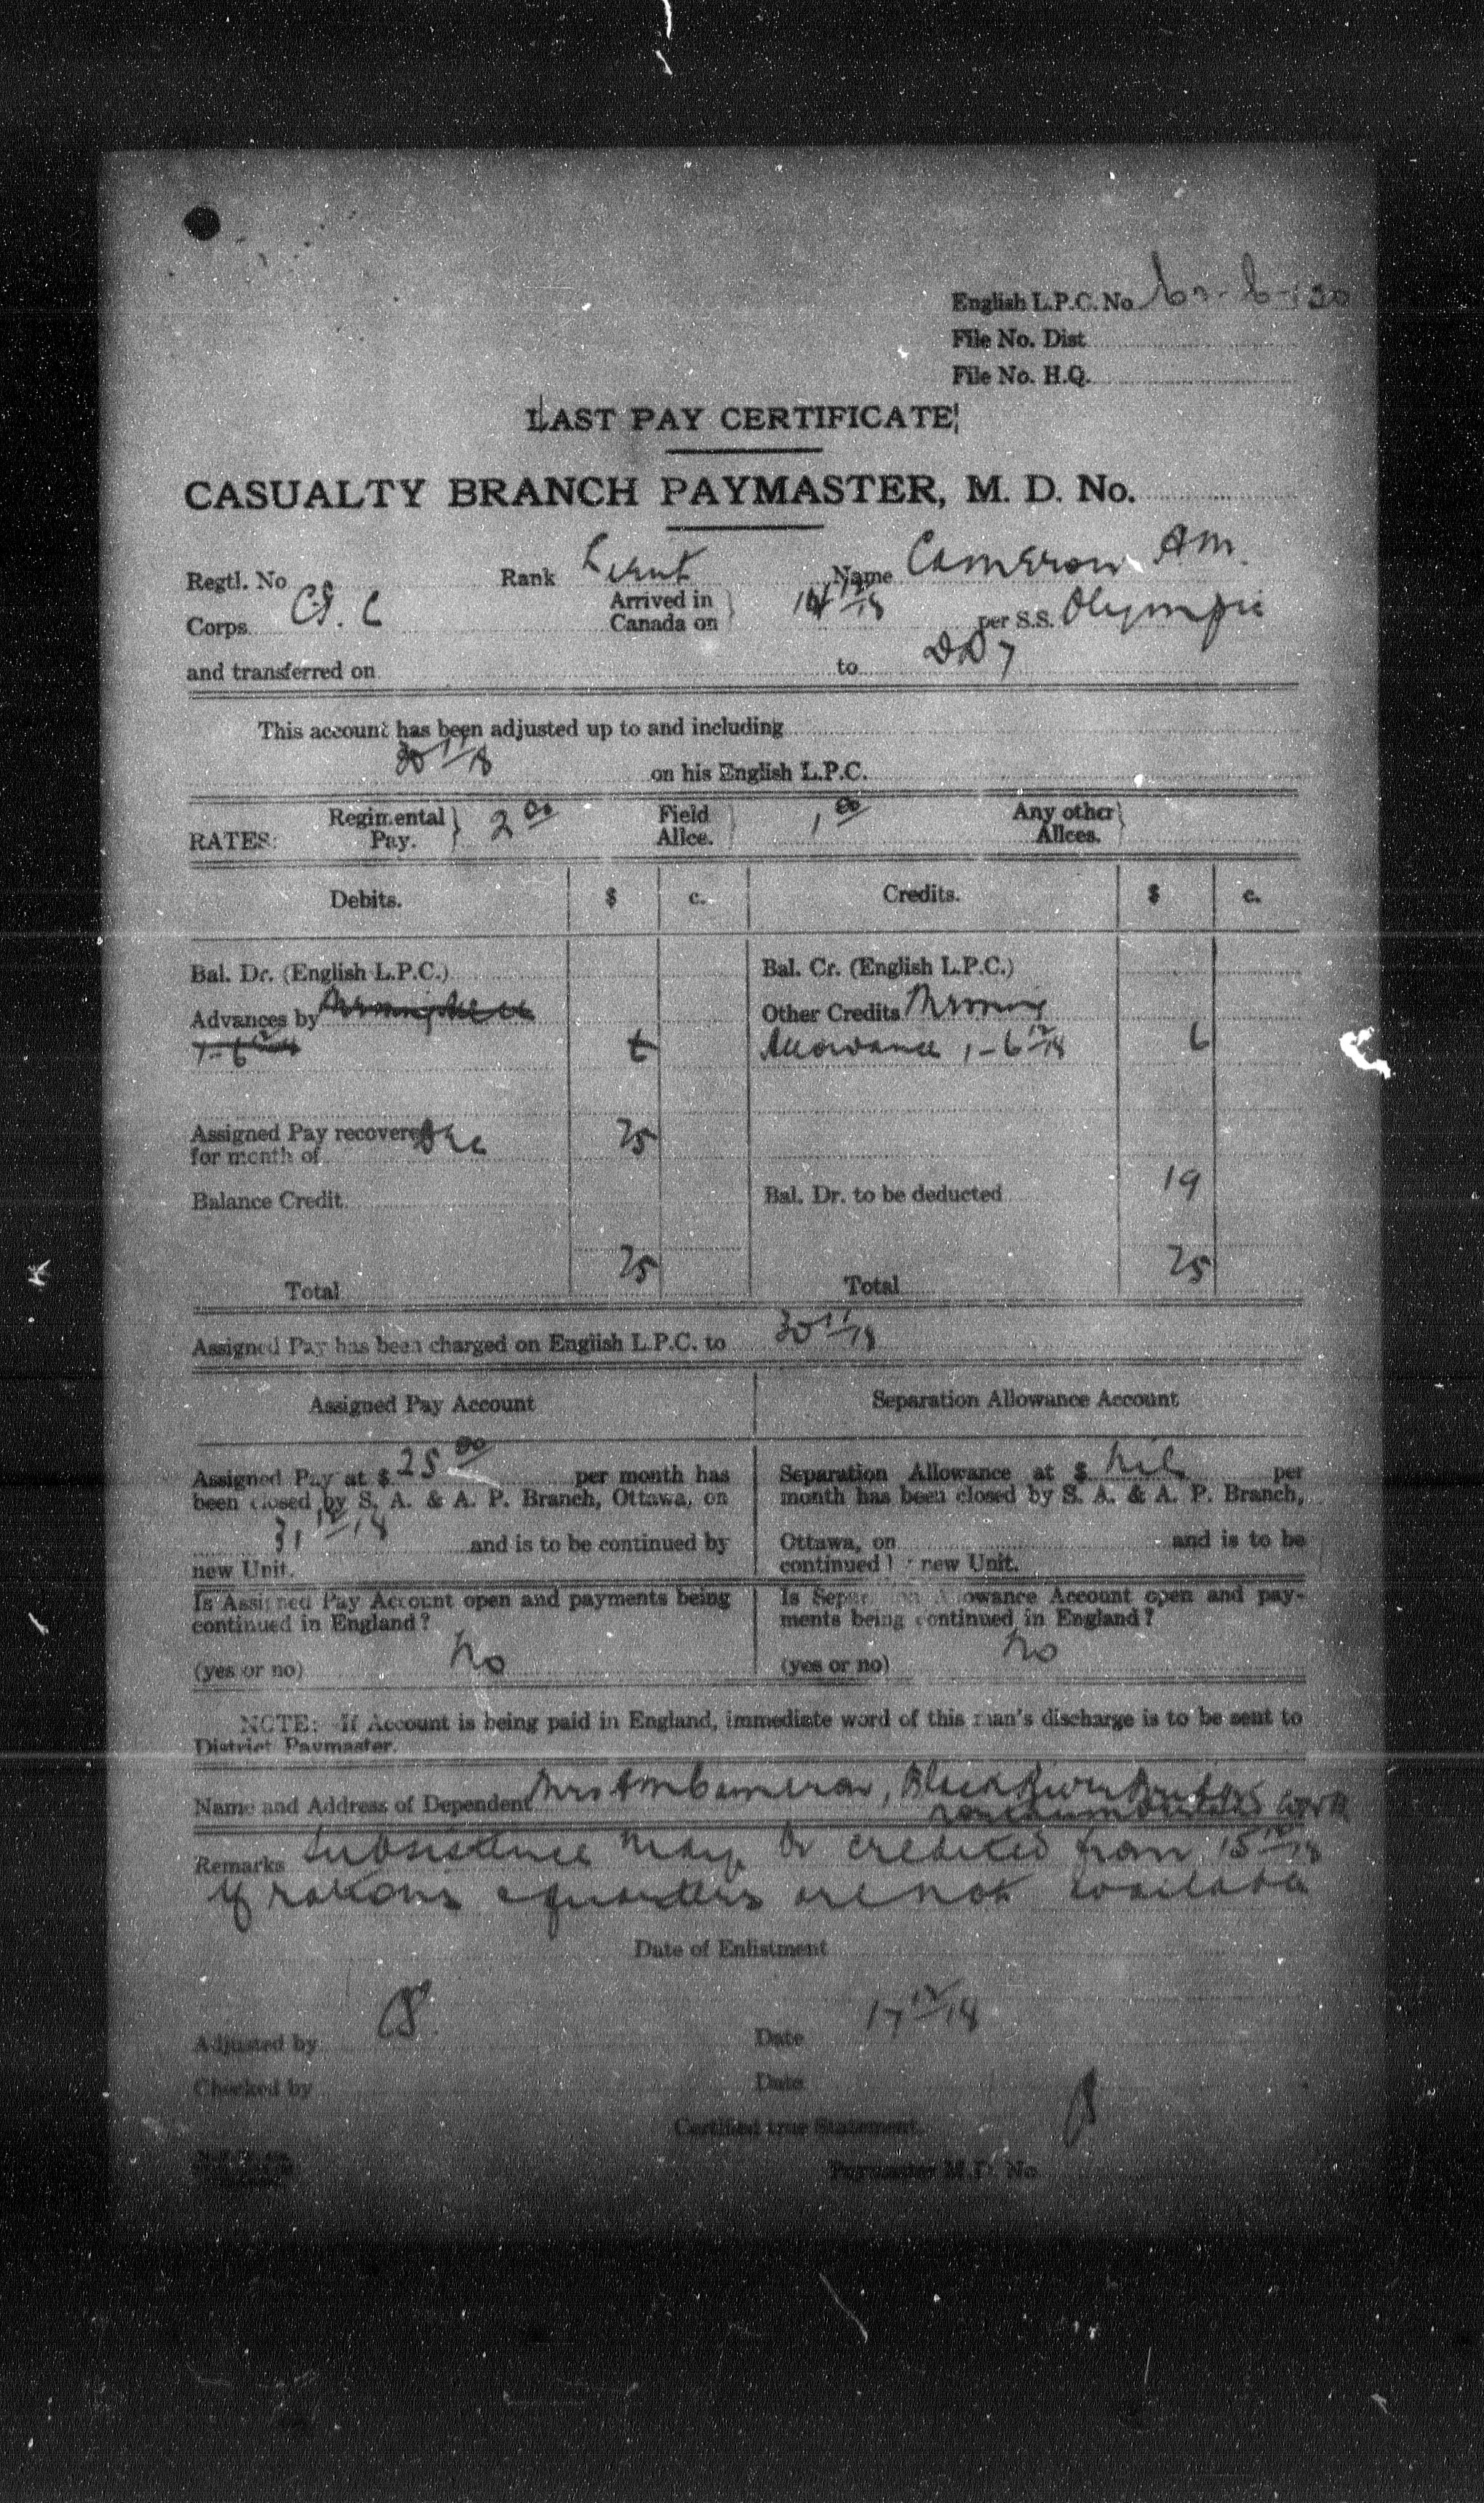 English L.P.C. No
File No. Dist
File No. H.Q.
LAST PAY CERTIFICATE
CASUALTY BRANCH PAYMASTER, M. D. No.
Regtl. No Rank Lieut Name Cameron AM.
Corps Arrived in Canada on 14/12/18 per S.S. Olympic
and transferred on to DD7
This account has been adjusted up to and including
30 11/18 on his English L.P.C.
RATES: Regimental Pay. 2 00 Field Allce. 1 00 Any other Allces.
Debits. $ c. Credits. $ c.
Bal. Dr. (English L.P.C.) Bal. Cr. (English L.P.C.)
Advances by Other Credits Messing
1-6 12/18 6 Allowance 1-6 12/18 6
Assigned Pay recovered
for month of Dec 25
Balance Credit Bal. Dr. to be deducted 19
Total 25 Total 25
Assigned Pay has been charged on English L.P.C. to 30 11/18
Assigned Pay Account
Assigned Pay at $ 25 00 per month has
been closed by S. A. & A. P. Branch, Ottawa, on
31 12/18 and is to be continued by
new Unit.
Is Assigned Pay Account open and payments being
continued in England?
(yes or no) No
Separation Allowance Account
Separation Allowance at $ Nil per
month has been closed by S. A. & A. P. Branch,
Ottawa, on and is to be
continued new Unit.
Is Separation Allowance Account open and pay-
ments being continued in England?
(yes or no) No
NOTE: If Account is being paid in England, immediate word of this man's discharge is to be sent to
District Paymaster.
Name and Address of Dependent Mrs AM Cameron, Black River
Remarks Subsistence may be credited from 15 12/18
if rations & quarters are not available
Date of Enlistment
Adjusted by Date 17 12/18
Checked by Date
Certified true Statement.
Paymaster M.D. No